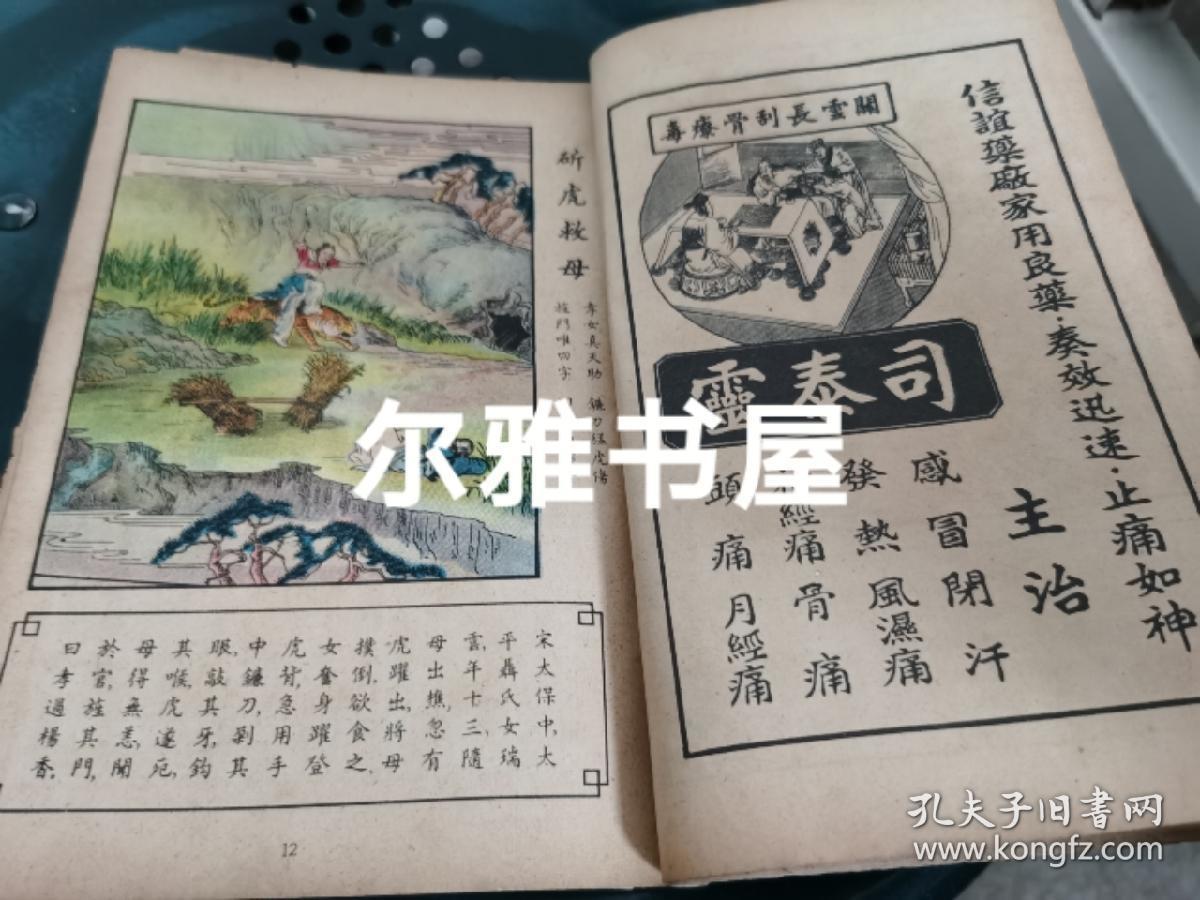 斫虎救母
孝女真天助
旌門唯四字
宋太保中,太
平聶氏女瑞
雲,年十三,隨
母出樵,忽有
虎躍出,將母
撲倒,欲食之.
女奮身躍登
虎背,急用手
中鐮刀,剁其
眼,敲其牙,鈎
其喉,虎遂死,
母得無恙,聞
於官,旌其門,
曰孝過楊香.
12
信誼藥廠家用良藥·奏效迅速·止痛如神
關雲長刮骨療毒
司泰靈
主治
感冒閉汗
發熱風濕痛
經痛骨痛
頭痛月經痛
尔雅书屋
孔夫子旧书网
www.kongfz.com